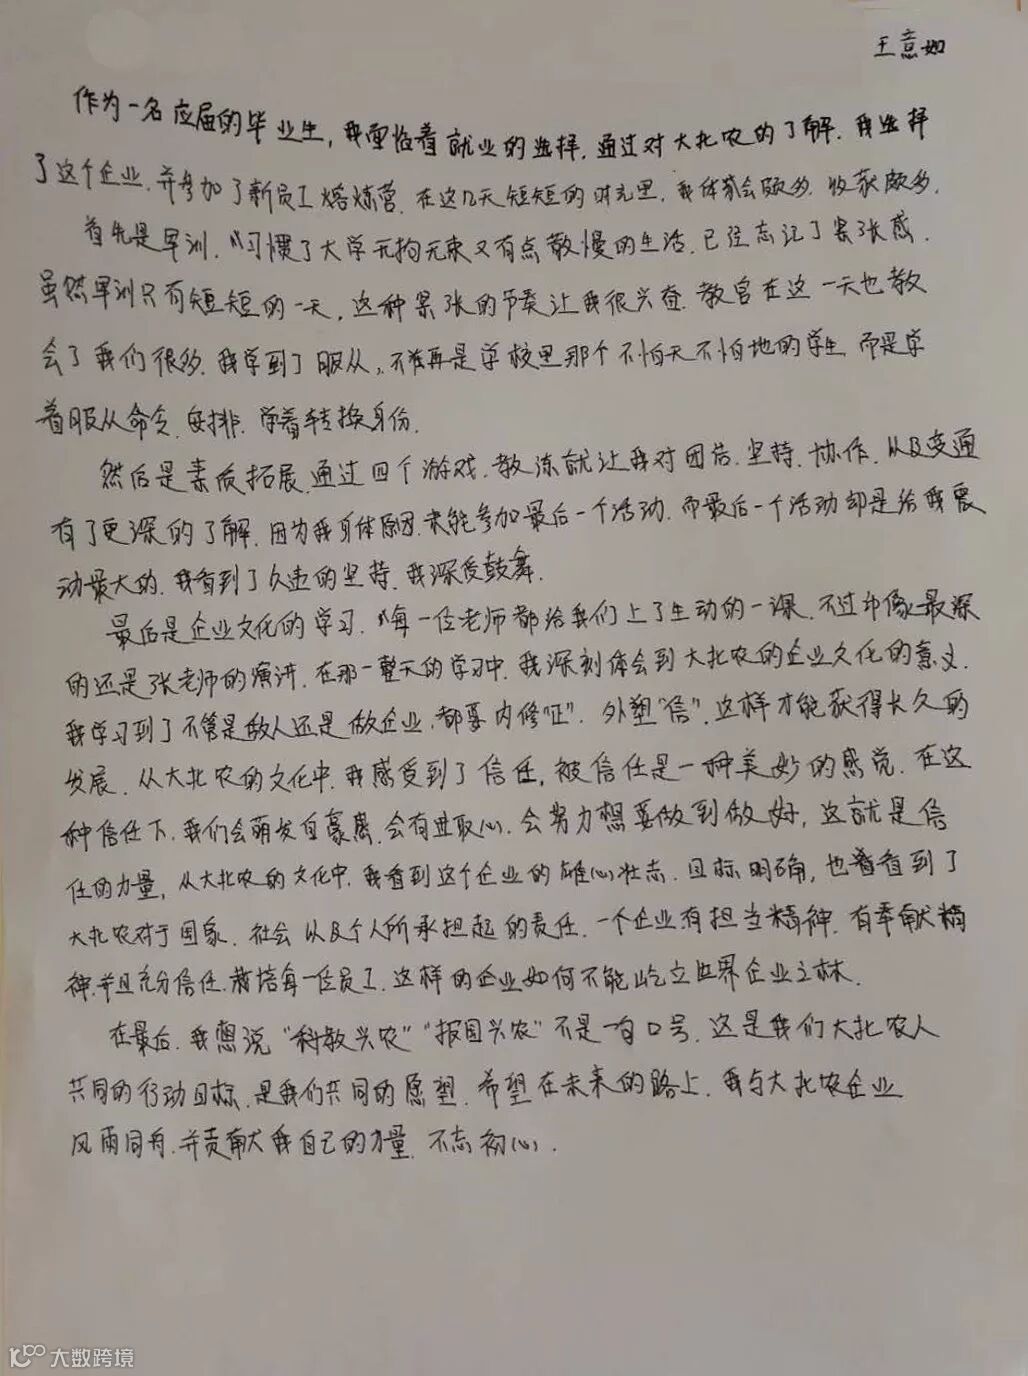 王意如
作为一名应届的毕业生，我面临着就业的选择，通过对大北农的了解，我选择
了这个企业，并参加了新员工熔炼营，在这几天短短的时光里，我体会颇多，收获颇多。
首先是早训，习惯了大学无拘无束又有点散慢的生活，已经忘记了紧张感，
虽然早训只有短短的一天，这种紧张的节奏让我很兴奋，教官在这一天也教
会了我们很多，我学到了服从，不再是学校里那个不怕天不怕地的学生，而是学
着服从命令、安排，学着转换身份。
然后是素质拓展，通过四个游戏，教练就让我对团结、坚持、协作、以及变通
有了更深的了解，因为我身体原因，未能参加最后一个活动，而最后一个活动却是给我震
动最大的，我看到了久违的坚持，我深受鼓舞。
最后是企业文化的学习，每一位老师都给我们上了生动的一课，不过印像最深
的还是张老师的演讲，在那一整天的学习中，我深刻体会到大北农的企业文化的意义，
我学习到了不管是做人还是做企业，都要内修“正”，外塑“信”，这样才能获得长久的
发展，从大北农的文化中，我感受到了信任，被信任是一种美妙的感觉，在这
种信任下，我们会萌发自豪感，会有进取心，会努力想要做到做好，这就是信
任的力量，从大北农的文化中，我看到这个企业的雄心壮志，目标明确，也看到了
大北农对于国家、社会以及个人所承担起的责任，一个企业，有担当精神，有奉献精
神，并且充分信任、栽培每一位员工，这样的企业如何不能屹立世界企业之林。
在最后，我想说“科教兴农”“报国兴农”不是一句口号，这是我们大北农人
共同的行动目标，是我们共同的愿望，希望在未来的路上，我与大北农企业
风雨同舟，并贡献我自己的力量，不忘初心。
大数跨境